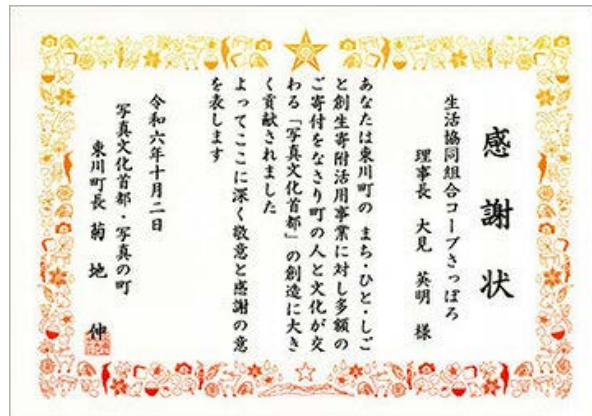 感謝状
生活協同組合コープさっぽろ
理事長 大見 英明 様
あなたは東川町の まち・ひと・しご
と創生寄附活用事業に対し多額の
ご寄付をなさり町の人と文化が交
わる「写真文化首都」の創造に大き
く貢献されました
よってここに深く敬意と感謝の意
を表します
令和六年十月二日
写真文化首都・写真の町
東川町長 菊地 伸